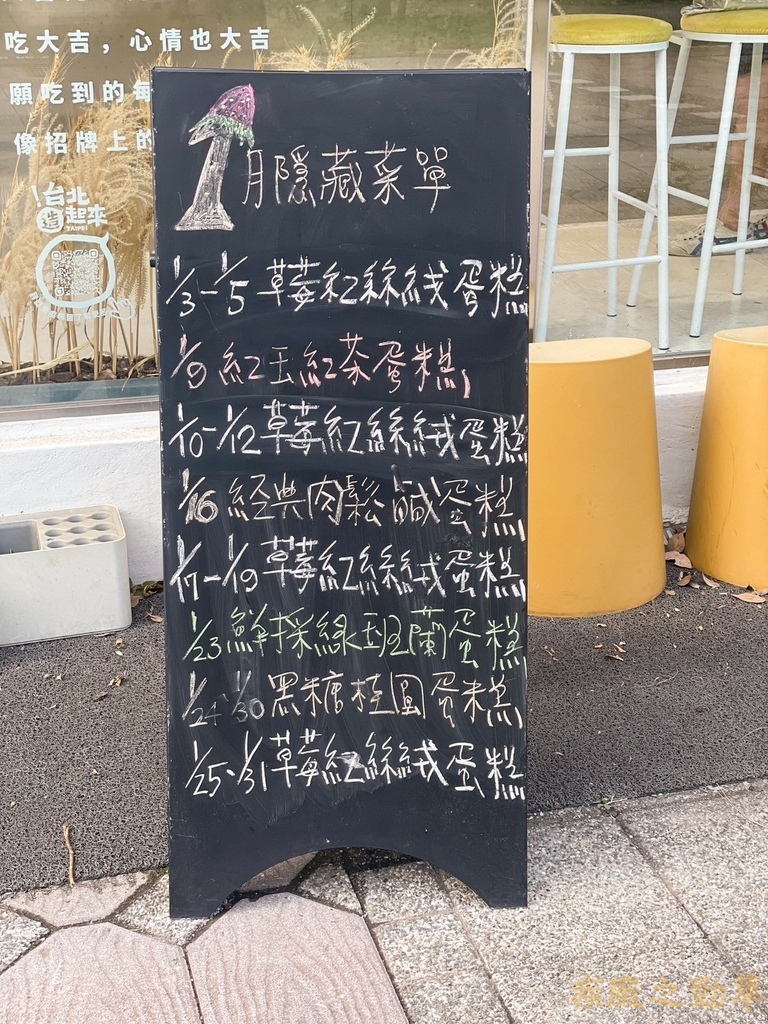 吃大吉，心情也大吉
願吃到的每
像招牌上的
!台北
造起來
TAIPEI
月隱藏菜單
1/3-1/5 草莓紅絲絨蛋糕
1/9 紅玉紅茶蛋糕
1/10-1/12 草莓紅絲絨蛋糕
1/16 經典肉鬆鹹蛋糕
1/17-1/19 草莓紅絲絨蛋糕
1/23 鮮採綠班蘭蛋糕
1/24 1/30 黑糖桂圓蛋糕
1/25-1/31 草莓紅絲絨蛋糕